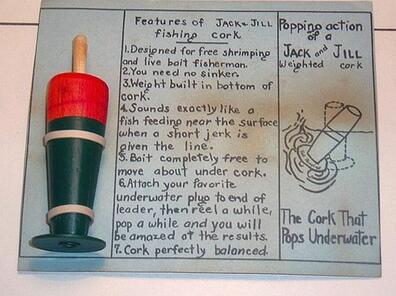 Features of JACK & JILL
fishing cork
1. Designed for free shrimping
and live bait fisherman.
2. You need no sinker.
3. Weight built in bottom of
cork.
4. Sounds exactly like a
fish feeding near the surface
when a short jerk is
given the line.
5. Bait completely free to
move about under cork.
6. Attach your favorite
underwater plug to end of
leader, then reel a while,
pop a while and you will
be amazed at the results.
7. Cork perfectly balanced.
Popping action
of a
JACK and JILL
Weighted cork
The Cork That
Pops Underwater